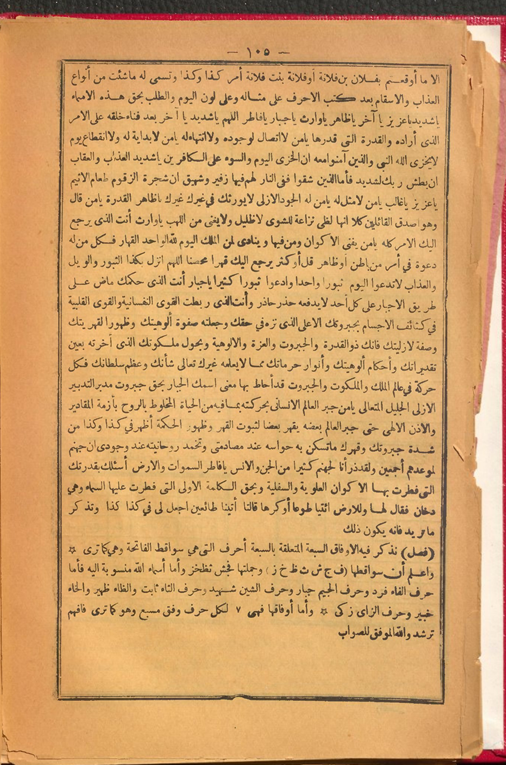 — ١٠٥ —
الا ما أوقعتم بفلان بن فلانة أو فلانة بنت فلانة أمر كذا وكذا وتسمى له ماشئت من أنواع
العذاب والاسقام بعد كتب الاحرف على مثاله وعلى لون اليوم والطلب بحق هذه الاسماء
ياشديد ياعزيز يا آخر ياظاهر ياوارث ياجبار يافاطر اللهم ياشديد يا آخر بعد فناء خلقه على الامر
الذى أراده والقدرة التى قدرها يامن لااتصال لوجوده ولاانتهاء له يامن لابداية له ولاانقطاع يوم
لايخزى الله النبى والذين آمنوا معه ان الخزى اليوم والسوء على الكافرين ياشديد العذاب والعقاب
ان بطش ربك لشديد فأما الذين شقوا ففى النار لهم فيها زفير وشهيق ان شجرة الزقوم طعام الاثيم
ياعزيز ياغالب يامن لامثل له يامن له الجود الازلى لايورثك فى غيرك غيرك ياظاهر القدرة يامن قال
وهو أصدق القائلين كلا انها لظى نزاعة للشوى لاظليل ولايغنى من اللهب ياوارث أنت الذى يرجع
اليك الامر كله يامن يفنى الاكوان ومن فيها وينادى لمن الملك اليوم لله الواحد القهار فكل من له
دعوة فى أمر من باطن أو ظاهر قل أو كثر يرجع اليك قهرا محسنا اللهم انزل بكذا الثبور والويل
والعذاب لاتدعوا اليوم ثبورا واحدا وادعوا ثبورا كثيرا ياجبار أنت الذى حكمك ماض على
طريق الاجبار على كل أحد لايدفعه حذر حاذر وأنت الذى ربطت القوى النفسانية والقوى القلبية
فى كثائف الاجسام بجبروتك الاعلى الذى نزه فى حقك وجعلته صفوة ألوهيتك وظهورا لقهريتك
وصفة لازليتك فانك ذو القدرة والجبروت والعزة والالوهية وبحول ملكوتك الذى أخرته بعين
تقديراتك وأحكام ألوهيتك وأنوار حرماتك مما لايعلمه غيرك تعالى شأنك وعظم سلطانك فكل
حركة فى عالم الملك والملكوت والجبروت قد أحاط بها معنى اسمك الجبار بحق جبروت مدبر التدبير
الازلى الجليل المتعالى يامن جبر العالم الانسانى بحركته بما فيه من الحياة المخلوط بالروح بأزمة المقادير
والاذن الالهى حتى جبر العالم بعضه يقهر بعضا لثبوت القهر وظهور الحكمة أظهر فى كذا وكذا من
شدة جبروتك وقهرك ماتسكن به حواسه عند مصادمتى وتخمد روحانيته عند وجودى ان جهنم
لموعدهم أجمعين ولقد ذرأنا لجهنم كثيرا من الجن والانس يافاطر السموات والارض أسئلك بقدرتك
التى فطرت بها الاكوان العلوية والسفلية وبحق الكلمة الاولى التى فطرت عليها السماء وهى
دخان فقال لها وللارض ائتيا طوعا أو كرها قالتا أتينا طائعين اجعل لى فى كذا كذا وتذكر
ماتريد فانه يكون ذلك
(فصل) نذكر فيه الاوفاق السبعة المتعلقة بالسبعة أحرف التى هى سواقط الفاتحة وهى كما ترى *
واعلم أن سواقطها (ف ج ش ث ظ خ ز) وجملتها فجش ثظخز وأما أسماء الله المنسوبة اليه فأما
حرف الفاء فرد وحرف الجيم جبار وحرف الشين شهيد وحرف الثاء ثابت والظاء ظهير والخاء
خبير وحرف الزاى زكى * وأما أوفاقها فهى ٧ لكل حرف وفق مسبع وهو كما ترى فافهم
ترشد والله الموفق للصواب